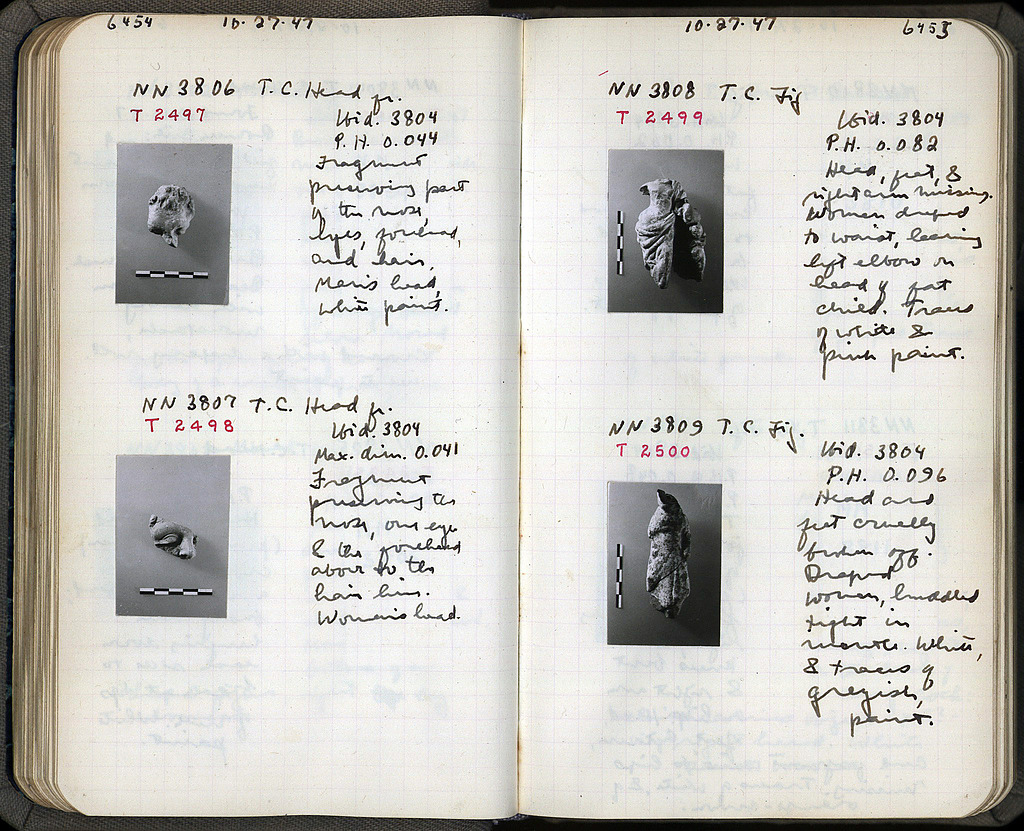 6454 10·27·47
NN 3806 T.C. Head fr.
T 2497
Ibid. 3804
P.H. 0.044
Fragment
preserving part
of the nose,
eyes, forehead,
and hair,
Man's head,
White paint.
NN 3807 T.C. Head fr.
T 2498
Ibid. 3804
Max. dim. 0.041
Fragment
preserving the
nose, one eye
& the forehead
above to the
hair line.
Woman's head.
10·27·47 6455
NN 3808 T.C. Fig
T 2499
Ibid. 3804
P.H. 0.082
Head, feet, &
right arm missing.
Woman draped
to waist, leaning
left elbow on
head of fat
child. Traces
of white &
pink paint.
NN 3809 T.C. Fig.
T 2500
Ibid. 3804
P.H. 0.096
Head and
feet cruelly
broken off.
Draped
woman, huddled
tight in
mantle. White,
& traces of
greyish,
paint.